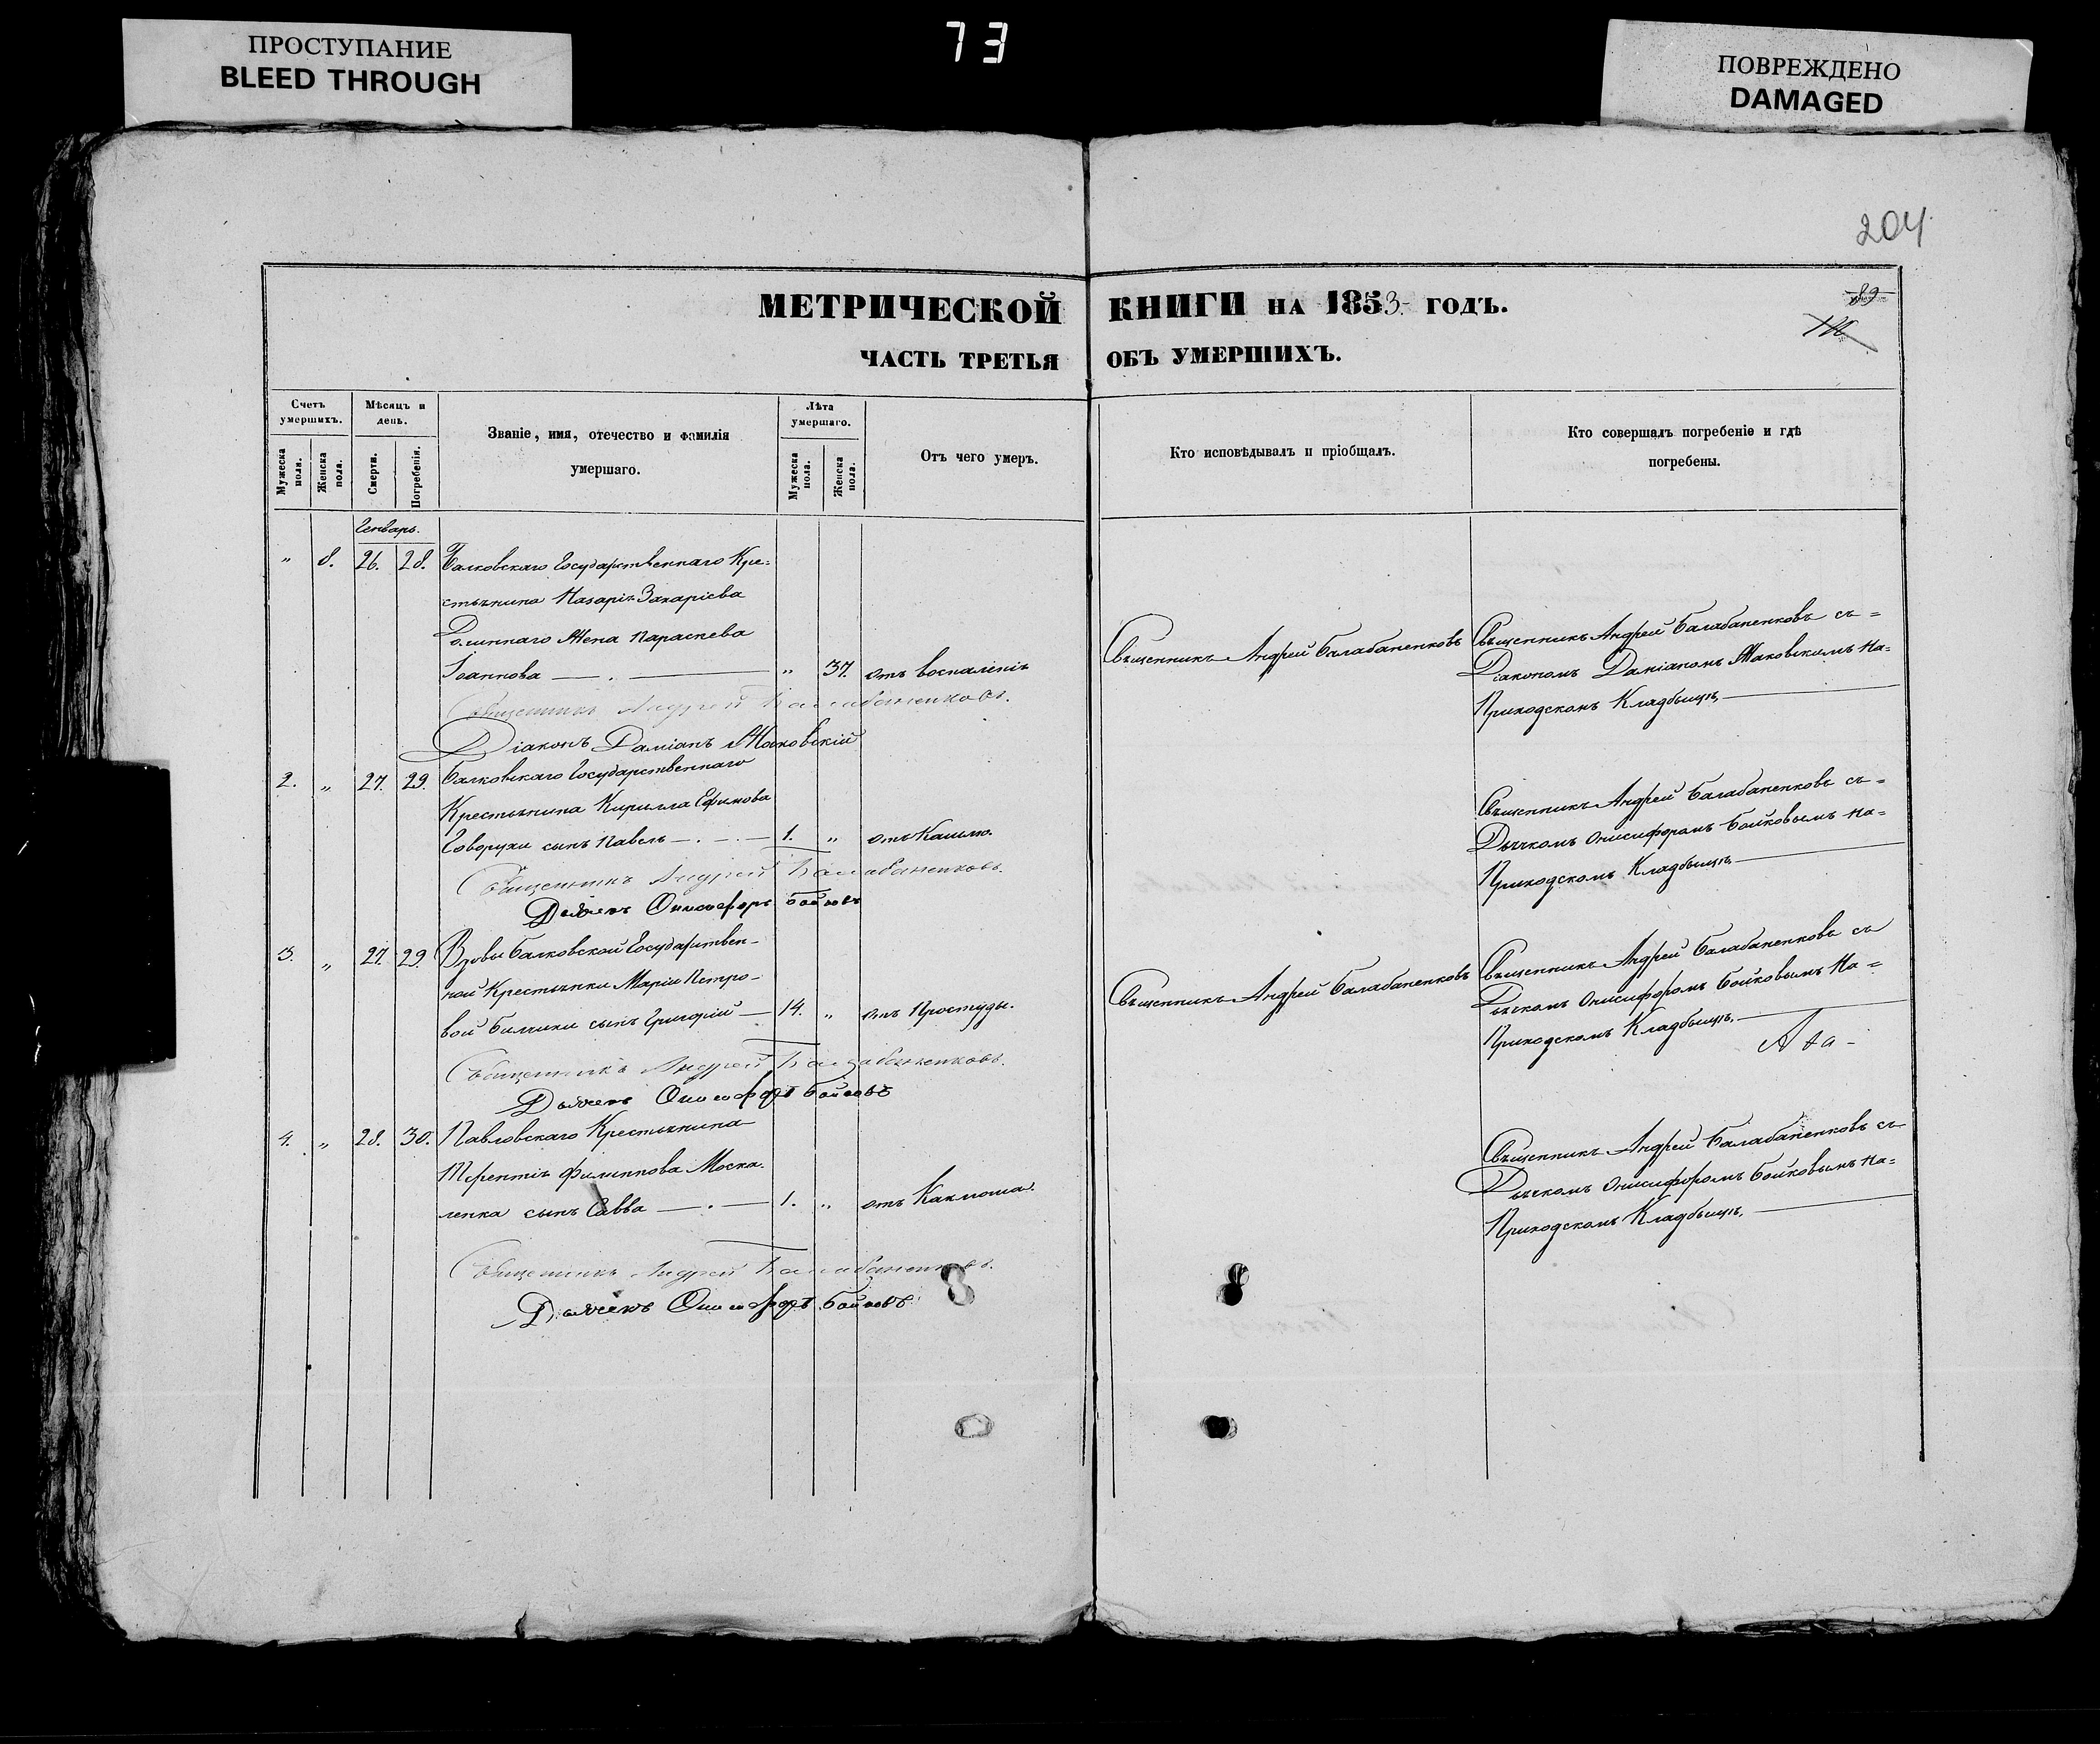 ПРОСТУПАНИЕ
BLEED THROUGH
73
ПОВРЕЖДЕНО
DAMAGED
204
89
МЕТРИЧЕСКОЙ КНИГИ НА 1853 ГОДЪ.
ЧАСТЬ ТРЕТЬЯ ОБЪ УМЕРШИХЪ.
Счетъ умершихъ.
Мужеска пола.
Женска пола.
Мѣсяцъ и день.
Смерти.
Погребенія.
Званіе, имя, отечество и фамилія
умершаго.
Лѣта умершаго.
Мужеска пола.
Женска пола.
Отъ чего умеръ.
Кто исповѣдывалъ и пріобщалъ.
Кто совершалъ погребеніе и гдѣ
погребены.
Генварь.
„ 8. 26. 28. Балковскаго Государственнаго Кре=
стьянина Назарія Захаріева
Жена Параскева
Іоаннова — „ 37. отъ воспаленія
Священникъ Андрей Балабаненковъ
Священникъ Андрей Балабаненковъ съ=
Діакономъ Даміаномъ Маковскимъ на=
Приходскомъ Кладбищѣ
Священникъ Андрей Балабаненковъ.
Діаконъ Даміанъ Маковскій
2. „ 27. 29. Балковскаго Государственнаго
Крестьянина Кирилла Ефимова
Говорухи сынъ Павелъ — 1. „ отъ Кашлю.
Священникъ Андрей Балабаненковъ съ=
Дьячкомъ Онисифоромъ Бойковымъ на=
Приходскомъ Кладбищѣ
Священникъ Андрей Балабаненковъ.
Дьячекъ Онисифоръ Бойковъ
3. „ 27. 29. Вдовы Балковской Государствен-
ной Крестьянки Маріи Петро-
вой сынъ Григорій — 14. „ отъ Простуды.
Священникъ Андрей Балабаненковъ
Священникъ Андрей Балабаненковъ съ
Дьячкомъ Онисифоромъ Бойковымъ на=
Приходскомъ Кладбищѣ.
Священникъ Андрей Балабаненковъ.
Дьячекъ Онисифоръ Бойковъ
4. „ 28. 30. Павловскаго Крестьянина
Терентія Филиппова Моска-
ленка сынъ Савва — 1. „ отъ
Священникъ Андрей Балабаненковъ съ
Дьячкомъ Онисифоромъ Бойковымъ на=
Приходскомъ Кладбищѣ.
Священникъ Андрей Балабаненковъ.
Дьячекъ Онисифоръ Бойковъ